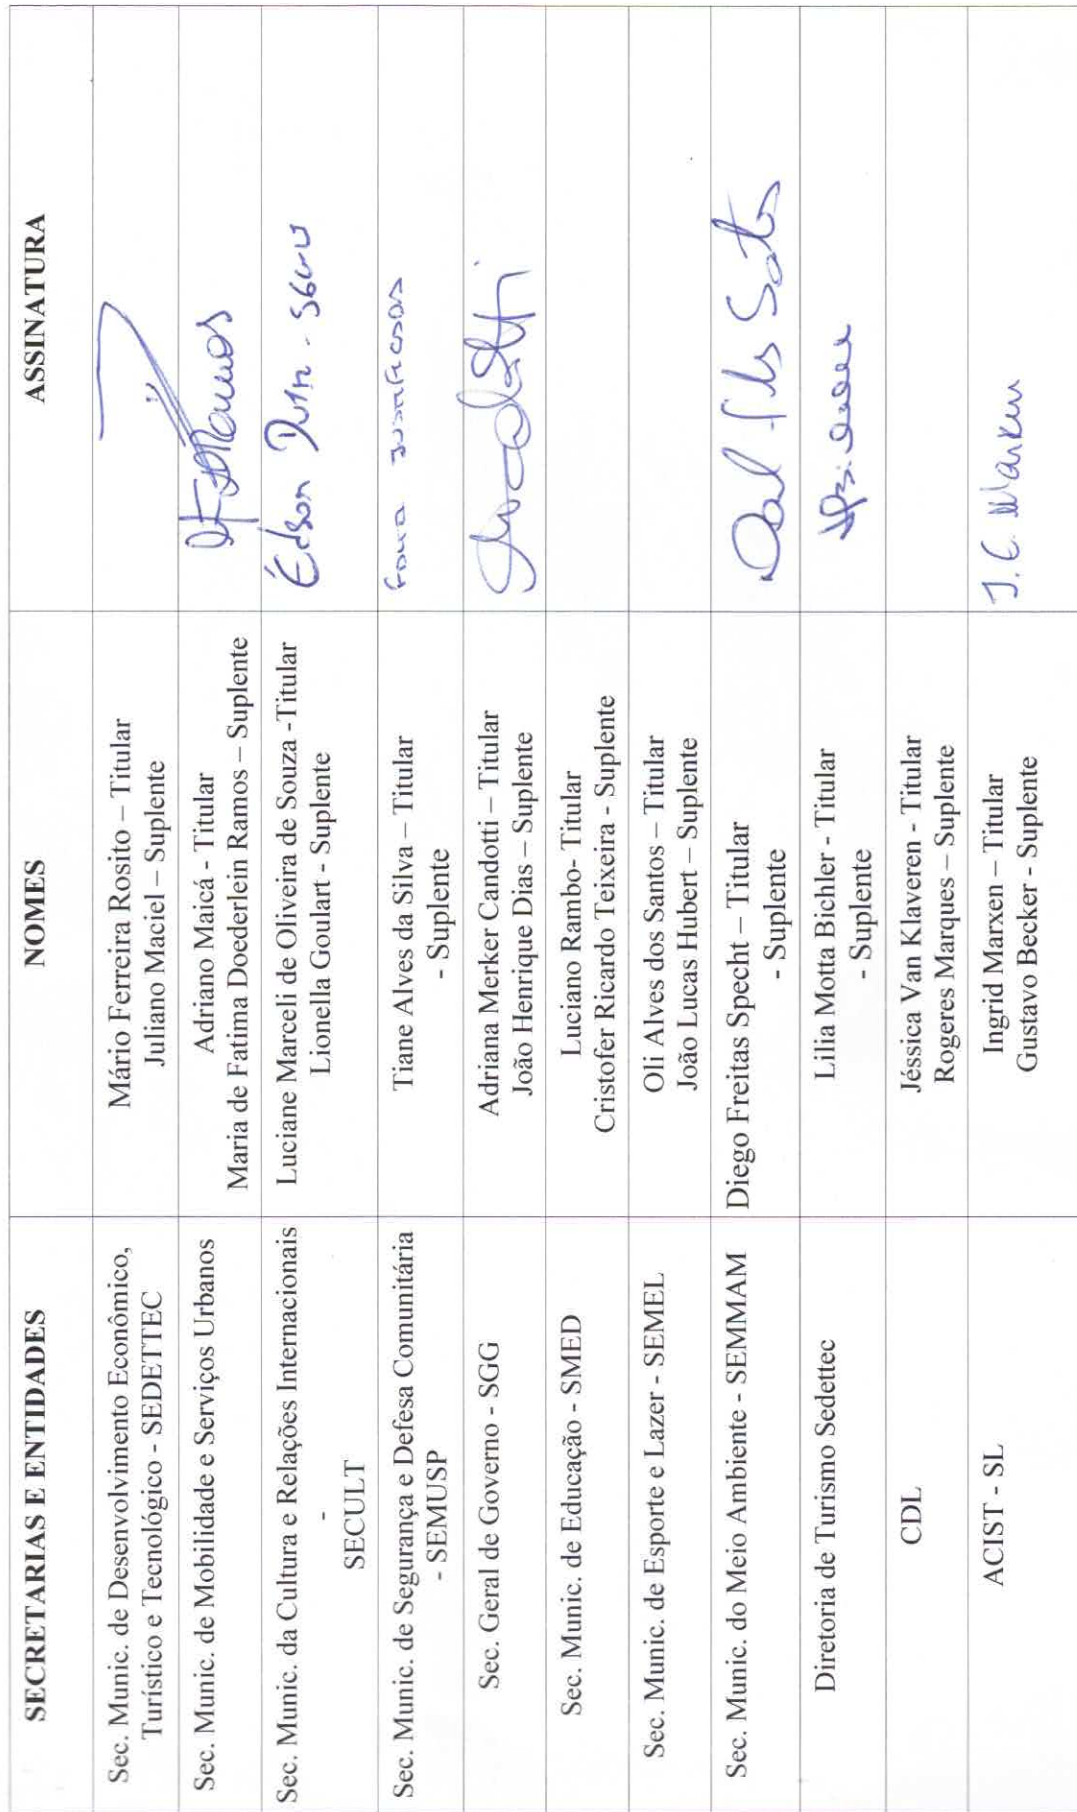 SECRETARIAS E ENTIDADES
NOMES
ASSINATURA
Sec. Munic. de Desenvolvimento Econômico,
Turístico e Tecnológico - SEDETTEC
Mário Ferreira Rosito – Titular
Juliano Maciel – Suplente
Sec. Munic. de Mobilidade e Serviços Urbanos
Adriano Maicá - Titular
Maria de Fatima Doederlein Ramos – Suplente
Sec. Munic. da Cultura e Relações Internacionais
-
SECULT
Luciane Marceli de Oliveira de Souza -Titular
Lionella Goulart - Suplente
Édson
Sec. Munic. de Segurança e Defesa Comunitária
- SEMUSP
Tiane Alves da Silva – Titular
- Suplente
Sec. Geral de Governo - SGG
Adriana Merker Candotti – Titular
João Henrique Dias – Suplente
Sec. Munic. de Educação - SMED
Luciano Rambo- Titular
Cristofer Ricardo Teixeira - Suplente
Sec. Munic. de Esporte e Lazer - SEMEL
Oli Alves dos Santos – Titular
João Lucas Hubert – Suplente
Sec. Munic. do Meio Ambiente - SEMMAM
Diego Freitas Specht – Titular
- Suplente
Diretoria de Turismo Sedettec
Lilia Motta Bichler - Titular
- Suplente
CDL
Jéssica Van Klaveren - Titular
Rogeres Marques – Suplente
ACIST - SL
Ingrid Marxen – Titular
Gustavo Becker - Suplente
I. C. Marxen